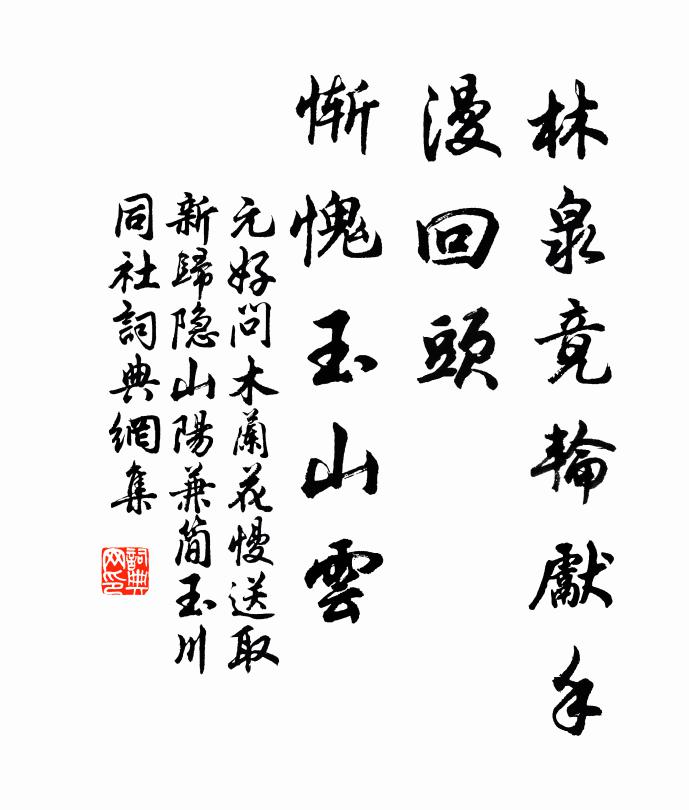 林泉竟輪獻手
漫回頭
慚愧玉山雲
元好問木蘭花慢送取
新歸隐山陽兼簡玉川
同社詞典網集
詞典
网印